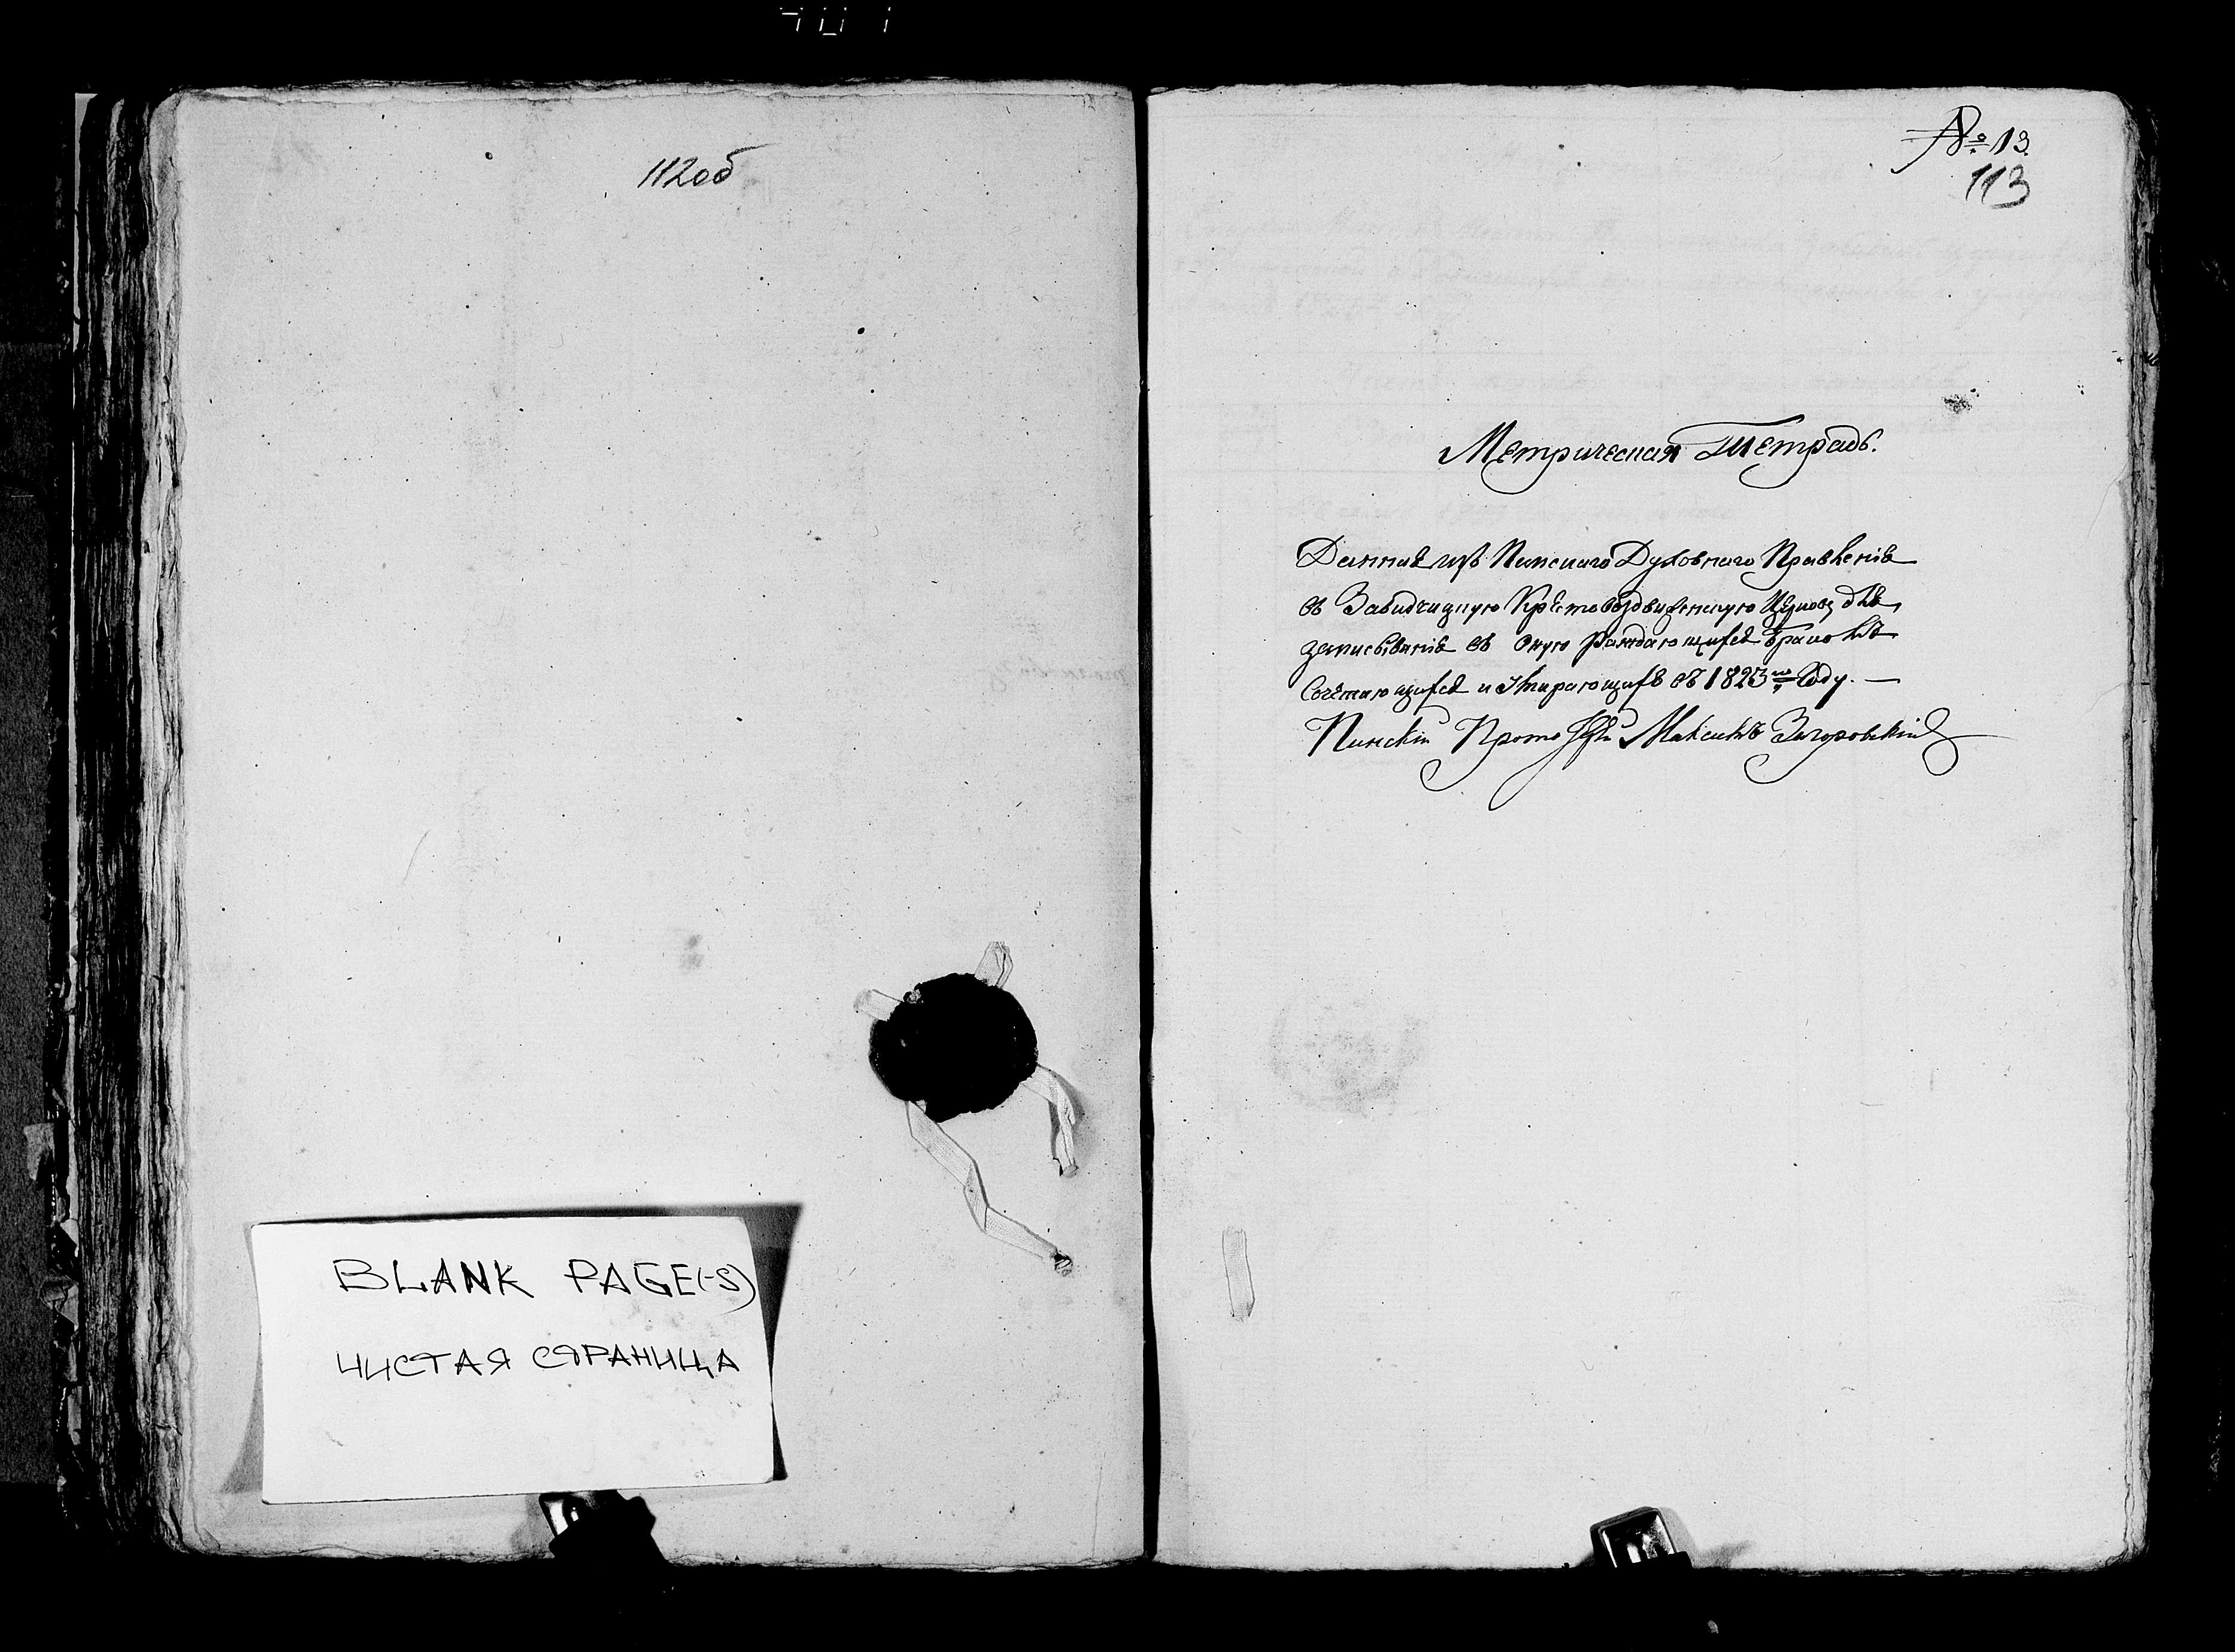 112об
BLANK PAGE(-S)
ЧИСТАЯ СТРАНИЦА
№ 13.
113
Метрическая Тетрадь.
Данная изъ Пинскаго Духовнаго Правленія
въ Завидчицкую Крестовоздвиженскую Церковь для
записыванія въ оную Раждающихся Бракомъ
Сочетающихся и Умирающихъ въ 1823м Году. —
Пинскій Прото Максимъ Загоровскій